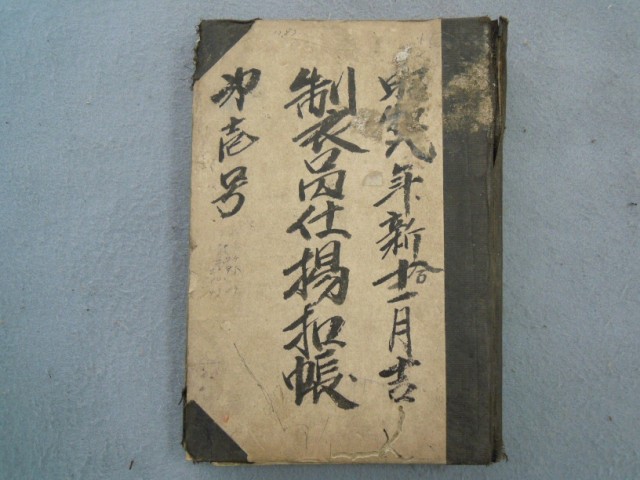 八年新十一月吉日
拾
製品仕揚扣帳
第壱号